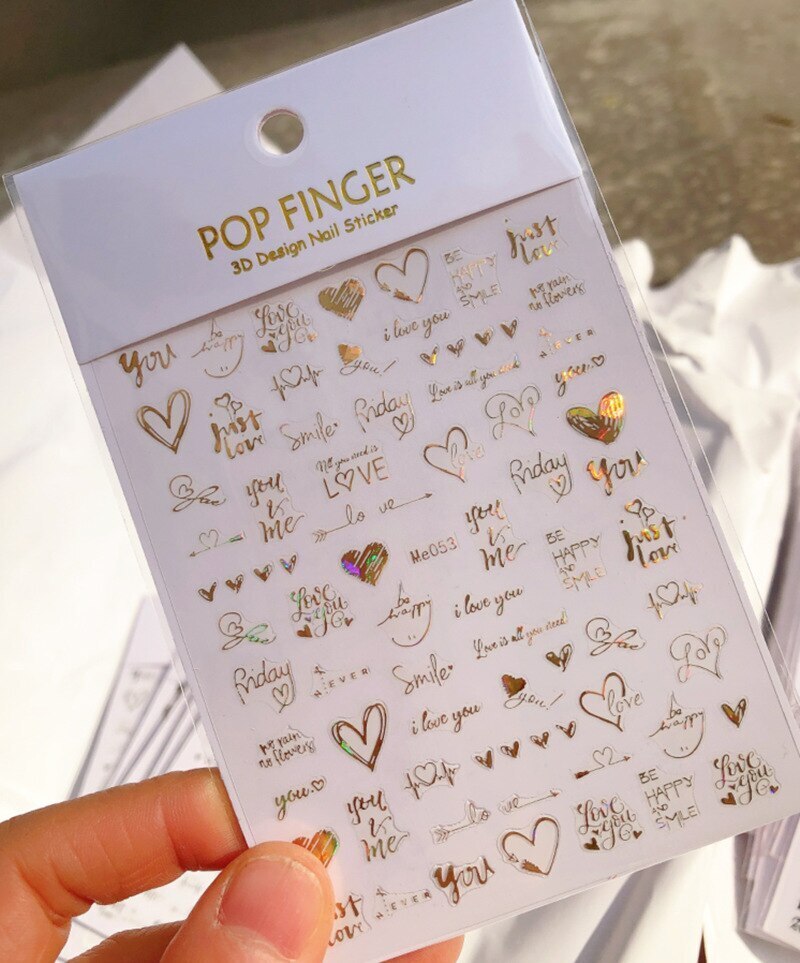 POP FINGER
3D Design Nail Sticker
just
love
BE
HAPPY
AND
SMILE
no rain
no flowers
Love
You
be
happy
you
i love you
you!
Love is all you need
NEVER
you
just
love
Smile
Friday
Love
All you need is
LOVE
love
Friday
you
you
&
me
lo ve
Me053
you
&
me
BE
HAPPY
AND
SMILE
just
love
Love
You
be
happy
i love you
Love is all you need!
Friday
NEVER
Smile
you!
Love
no rain
no flowers
i love you
love
be
happy
you
you
&
me
lo ve
Love
You
BE
HAPPY
AND
SMILE
Love
You
you
NEVER
just
love